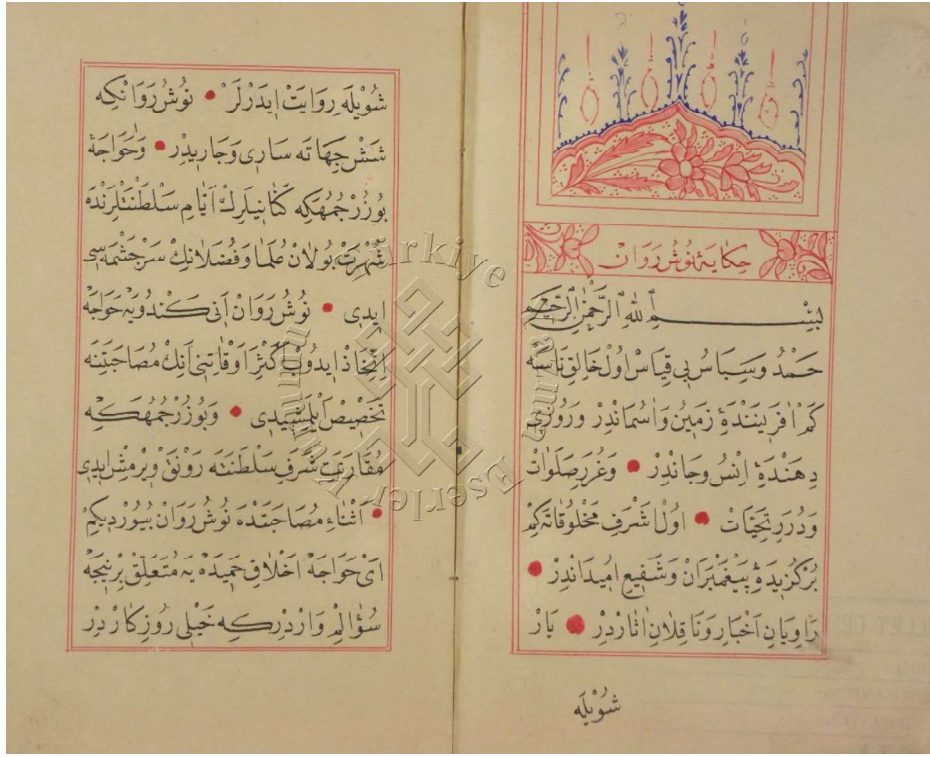 حكايهٔ نوش روان
بِسْمِ اللهِ الرَّحْمٰنِ الرَّحِيمِ
حَمْدُ وَسِپَاسُ بِى قِيَاسْ اول خَالِقِ نَاسَه
كِمْ اٰفَرِينَنْدَهٔ زَمِينُ وَاٰسُمَانْدِرْ وَرُوزِى
دِهَنْدَهٔ اِنْسُ وجَانْدِرْ • وَغُرَرِ صَلَوَاتْ
وَدُرَرِ تَحِيَّاتْ • اولْ اَشْرَفِ مَخْلُوقَاتَه كِمْ
بَرْكُزِيدَهٔ پَيْغَمْبَرَانْ وَشَفِيعِ اُمِيدَانْدِرْ •
رَاوِيَانِ اَخْبَارِ وَنَاقِلَانِ اٰثَارْدِرْ •
شُوْيلَه
شُوْيلَه رِوَايَتْ اِيدَرْلَرْ • نُوشْ رَوَانْكِه
شَشْ جِهَاتَه سَارِى وَجَارِيدِرْ • وَخَوَاجَهٔ
بُوزُرْجُمْهَكِه اَيَّامِ سَلْطَنَتْلَرِنْدَه
شُهْرَتْ بُولَانْ عُلَمَا وَفُضَلَانِكْ سَرْچَشْمَه سِى
اِيدِى • نُوشْ رَوَانْ اَنِى كَنْدُويَه خَوَاجَه
اِتِّخَاذْ ايدُوبْ اَكْثَرْ اَوْقَاتِنِى اَنِكْ مُصَاحَبَتِنَه
تَخْصِيصْ اَيلَمِشِيدِى • وَبُوزُرْجُمْهَكِه
مُقَارَنَتِ شَرَفِ سَلْطَنَتَه رَوْنَقْ وِيرْمِشْ ايدِى
• اَثْنَاءِ مُصَاحَبَتْدَه نُوشْ رَوَانْ بُيُورْدِيكِمْ
اَىْ خَوَاجَه اَخْلَاقِ حَمِيدَه يَه مُتَعَلِّقْ بِرْنِيجَه
سُؤَالِمْ وَارْدِرْكِه خَيْلِى رُوزِكَارْدِرْ
Türkiye Yazma Eserler Kurumu